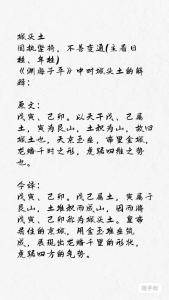 城头土
固执坚持，不善变通（主看日
柱、年柱）
《渊海子平》中对城头土的解
释：
原文：
戊寅、己卯。以天干戊、己属
土，寅为艮山，土积为山，故曰
城土也，天京玉垒，帝里金城，
龙蟠千时之形，虎踞四维之势
也。
今译：
戊寅、己卯。戊己属土，寅属于
艮山，土堆积而成山，因而将
戊寅、己卯称为城头土。皇帝
居住的京城，用金玉堆垒筑
成，展现出龙蟠千里的形状，
虎踞四方的气势。